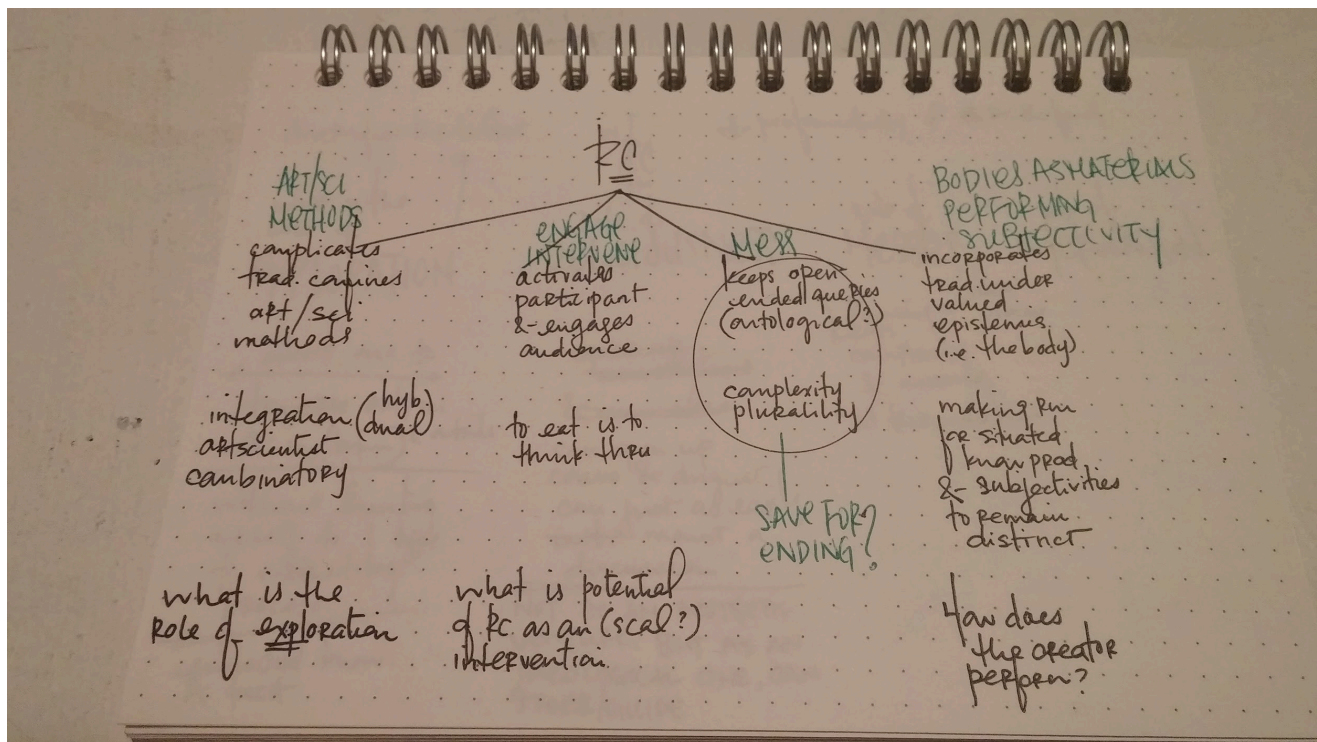 RC
ART/SCI
METHODS
complicates
trad. confines
art/sci
methods
integration (hyb.
dual)
artscientist
combinatory
what is the
role of exploration
ENGAGE
INTERVENE
activates
participant
& engages
audience
to eat is to
think thru
what is potential
of RC as an (scal?)
intervention
MESS
keeps open
ended queries
(ontological?)
complexity
plurality
SAVE FOR?
ENDING?
BODIES AS MATERIALS
PERFORMING
SUBJECTIVITY
incorporates
trad. under
valued
epistemes
(i.e. the body)
making rm
for situated
know prod
& subjectivities
to remain
distinct
How does
the creator
perform?